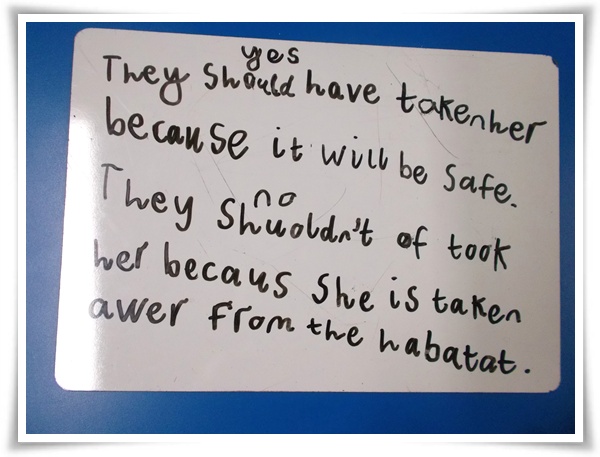 yes
They should have takenher
because it will be safe.
no
They shuoldn't of took
her becaus she is taken
awer from the habatat.